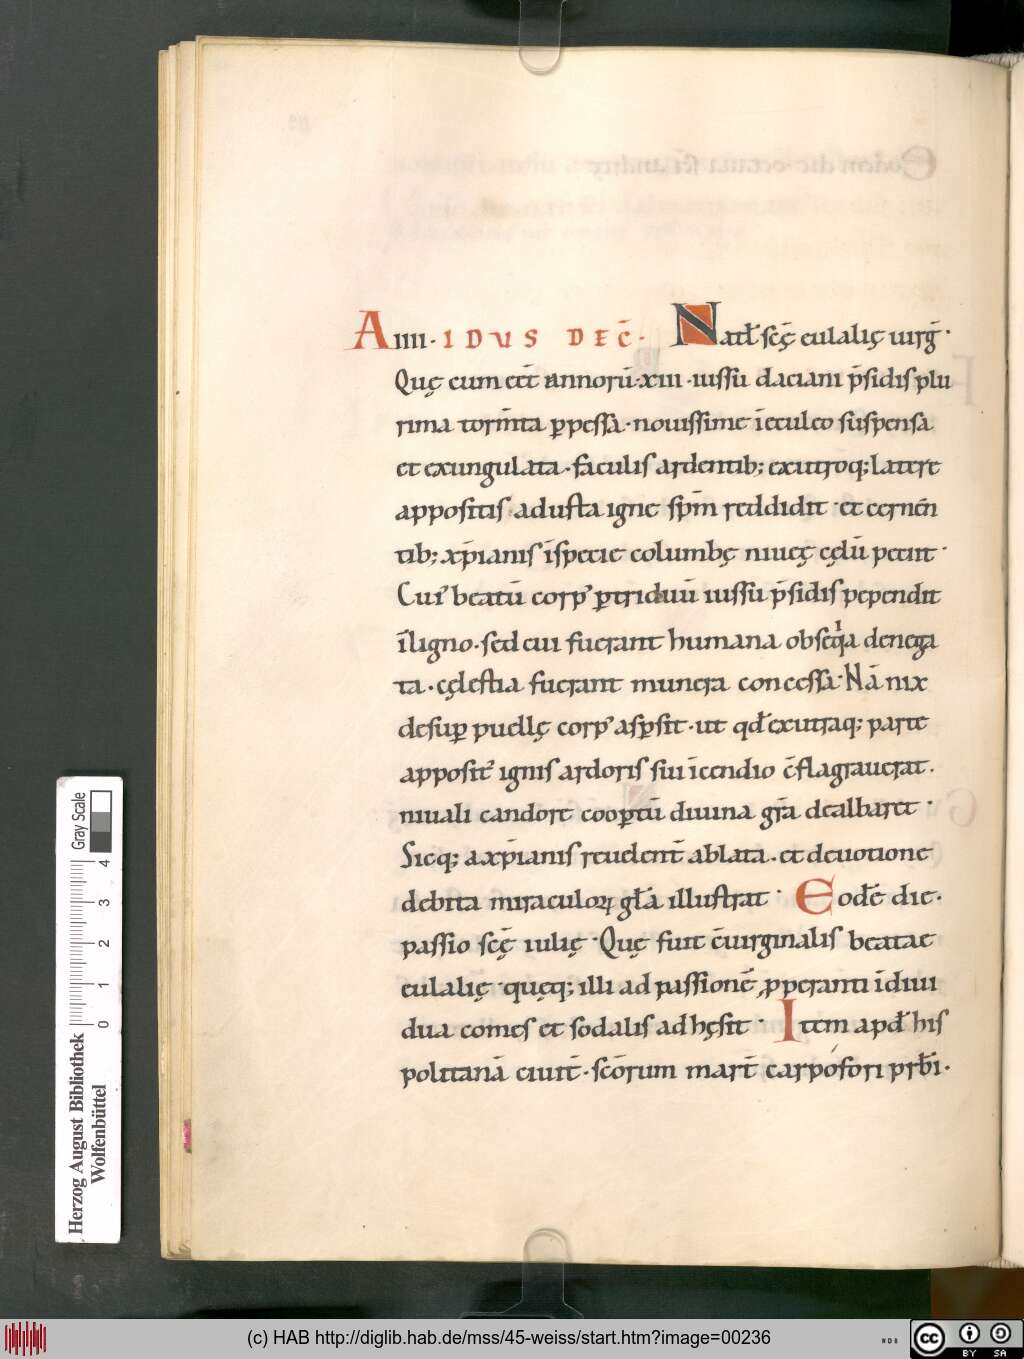 A IIII · IDUS DEC̄ · Natł scę̄ eulalię uirḡ ·
Quę cum eēt annorū · xiii · iussu daciani p̄sidis plu
rima torm̄ta ꝑpessa · nouissime ī eculeo suspensa
et exungulata · faculis ardentib; ex utroq; latere
appositis · adusta igne sp̄m reddidit · et cernen̄
tib; xp̄ianis ī specie columbę niueę cęlū petiit ·
Cuiꝰ beatū corpꝰ ꝑ triduū iussu p̄sidis pependit
ī ligno · sed cui fuerant humana obseqͥa denega
ta · cęlestia fuerant munera concessa · Nā nix
desuꝑ puellę corpꝰ asꝑsit · ut qđ ex utraq; parte
appositꝰ ignis ardoris sui īcendio c̄flagrauerat ·
niuali candore cooꝑtū diuina gr̄a dealbaret ·
Sicq; a xp̄ianis reudent̄ ablata · et deuotione
debita miraculoꝝ głā illustrat · Eodē die ·
passio scę̄ iulię · Quę fuit c̄uirginalis beatae
eulalię · quęq; illi ad passionē ꝓperanti īdiui
dua comes et sodalis adhęsit · Item apđ his
politanā ciuit̄ · sc̄orum mart̄ carpófori prb̄i ·
Herzog August Bibliothek
Wolfenbüttel
0 1 2 3 4
Gray Scale
(c) HAB http://diglib.hab.de/mss/45-weiss/start.htm?image=00236
cc BY SA